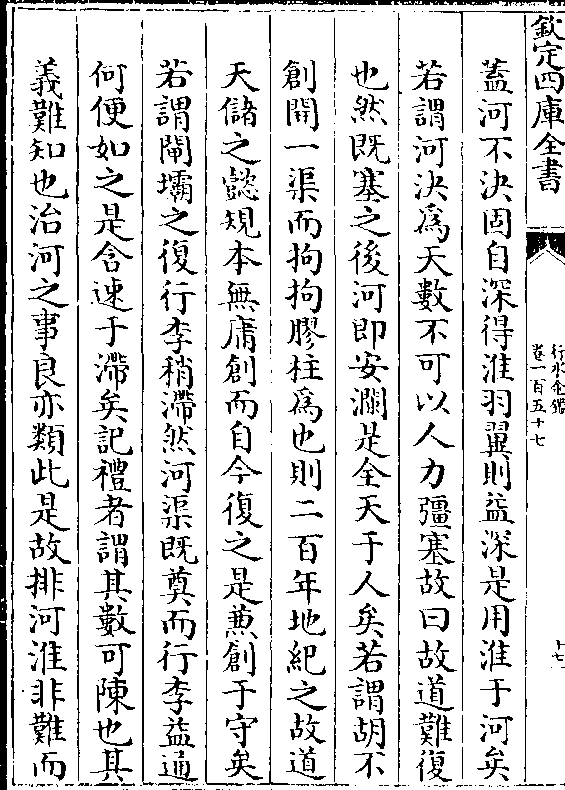 欽定四庫全書
行水金鑑
卷一百五十七
十七
蓋河不決固自深得淮羽翼則益深是用淮于河矣
若謂河決爲天數不可以人力彊塞故曰故道難復
也然既塞之後河即安瀾是全天于人矣若謂胡不
創開一渠而拘拘膠柱爲也則二百年地紀之故道
天儲之懿規本無庸創而自今復之是兼創于守矣
若謂閘壩之復行李稍滯然河渠既奠而行李益通
何便如之是含速于滯矣記禮者謂其數可陳也其
義難知也治河之事良亦類此是故排河淮非難而